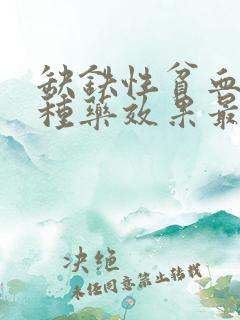 缺铁性贫血
种药效果最
决绝
未经同意禁止转载